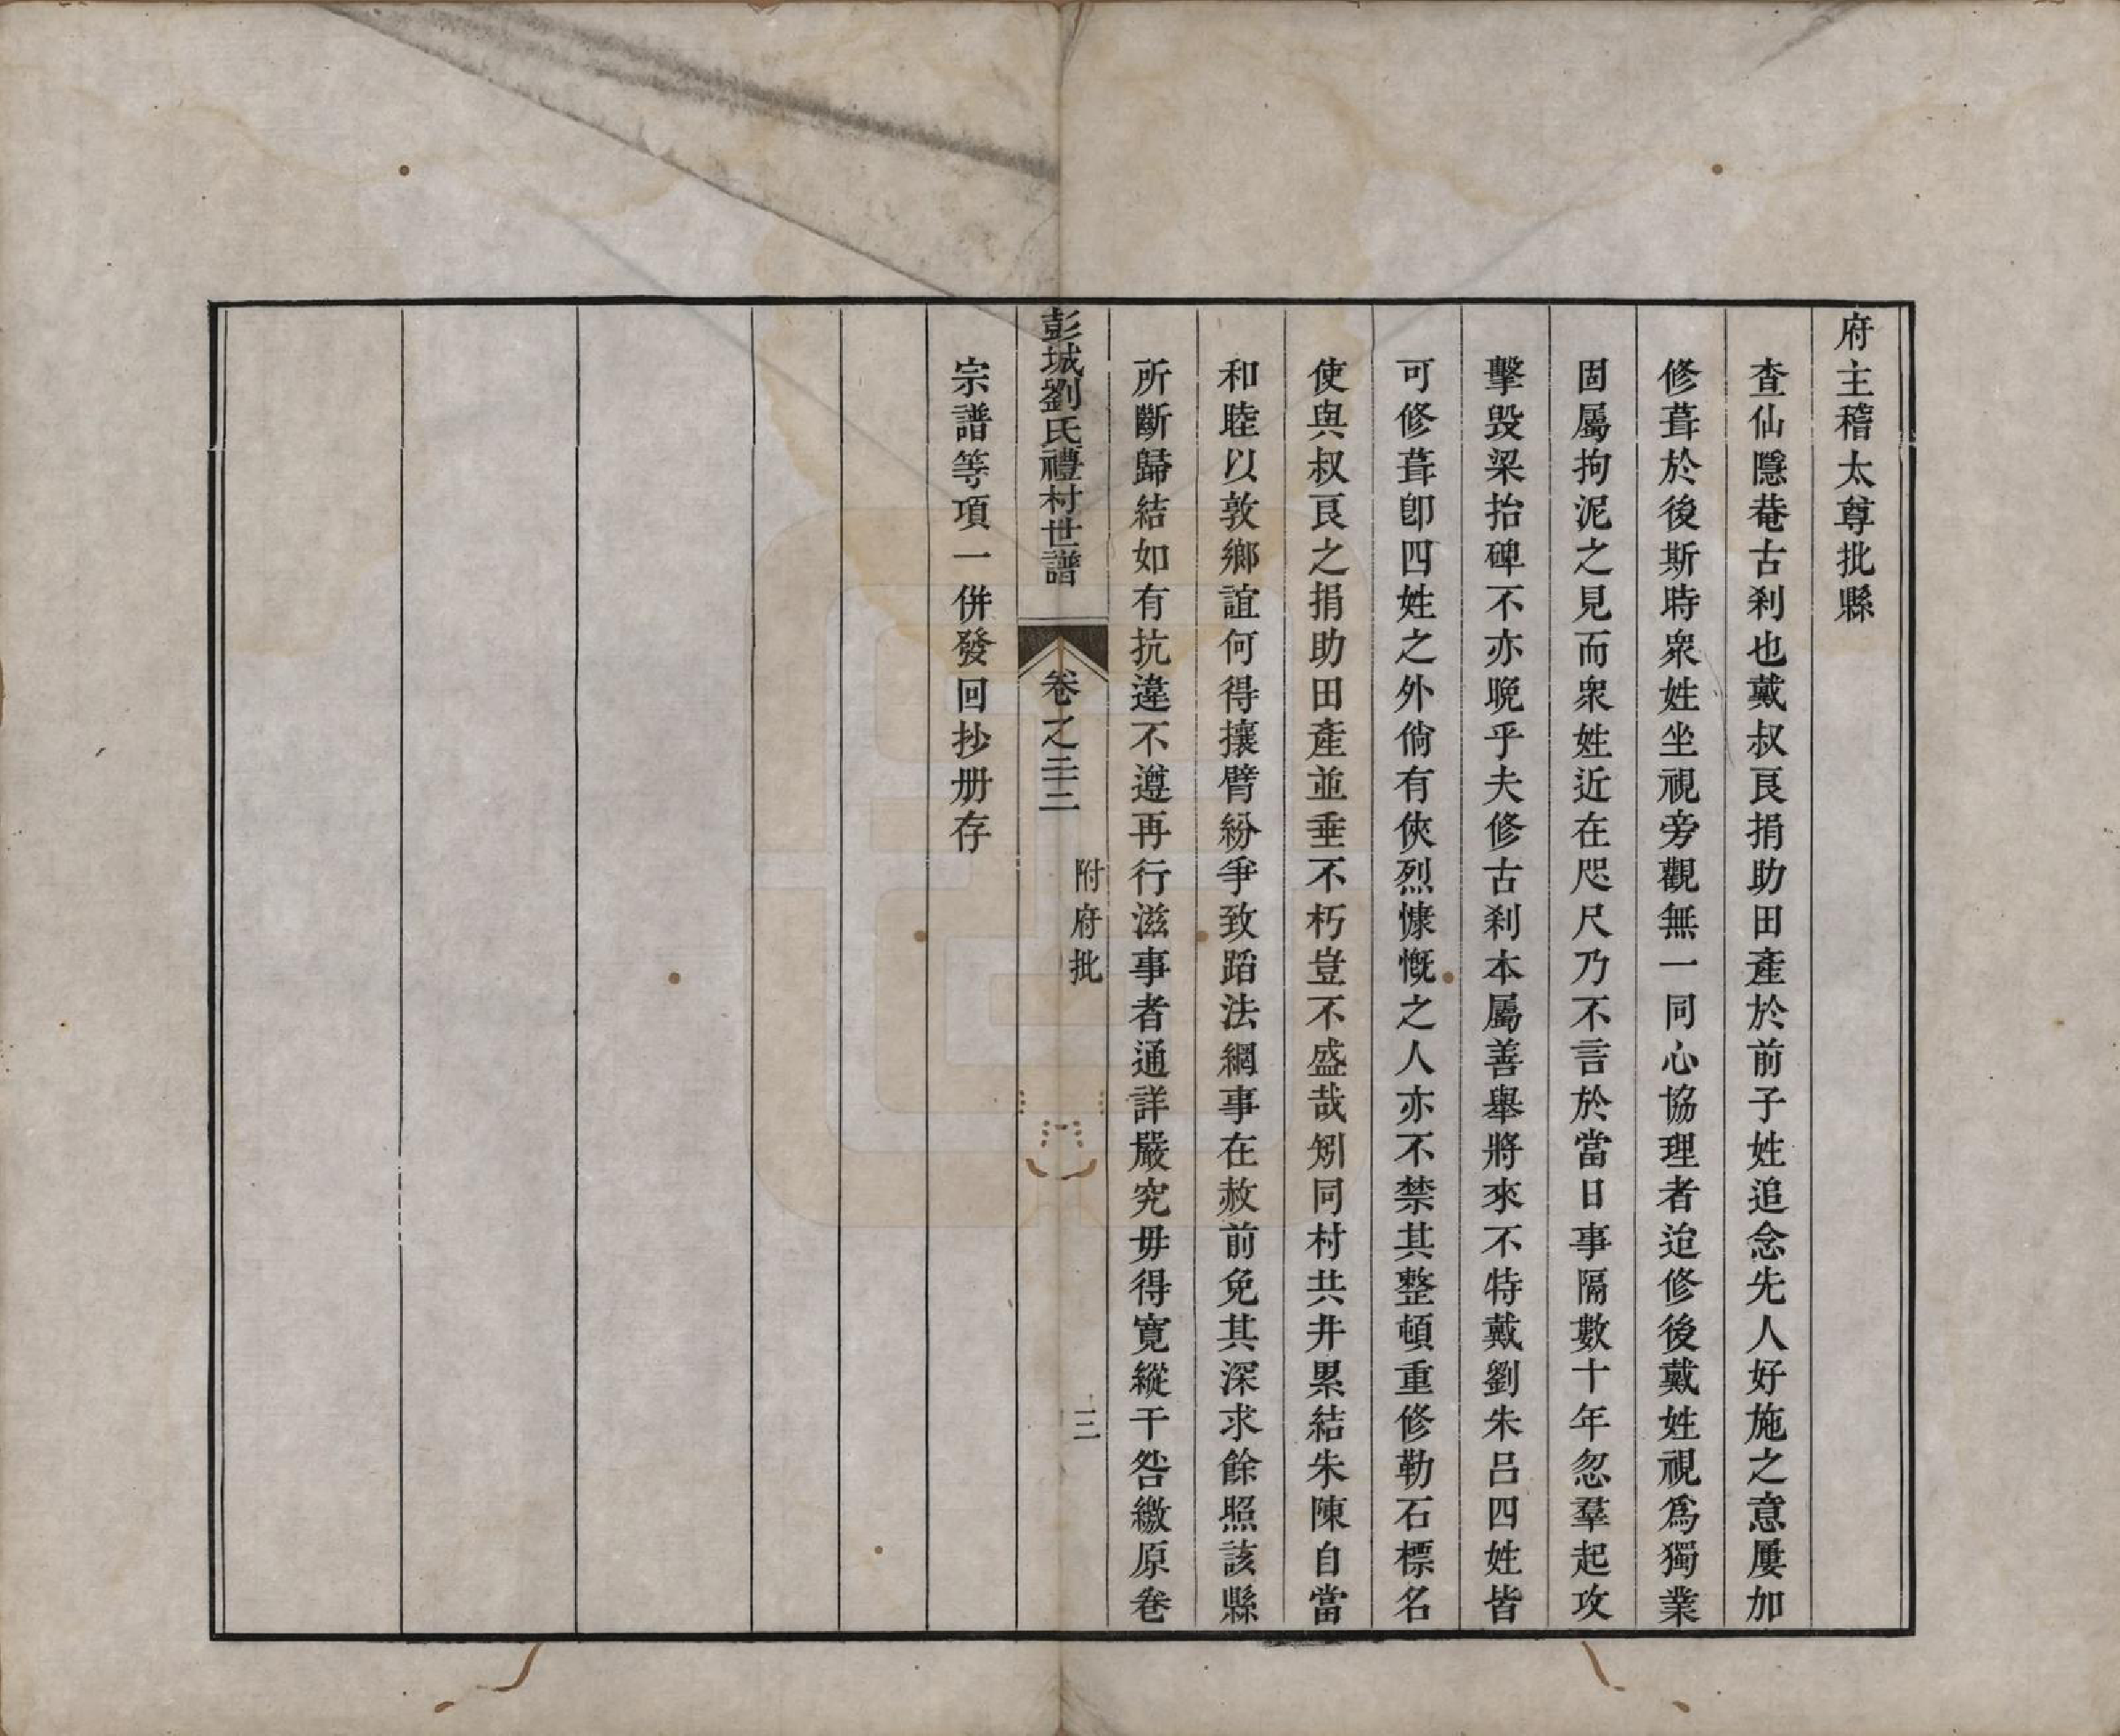 府主稽太尊批縣
查仙隱菴古刹也戴叔良捐助田產於前子姓追念先人好施之意屢加
修葺於後斯時衆姓坐視旁觀無一同心協理者迨修後戴姓視爲獨業
固屬拘泥之見而衆姓近在咫尺乃不言於當日事隔數十年忽羣起攻
擊毀梁抬碑不亦晚乎夫修古刹本屬善舉將來不特戴劉朱呂四姓皆
可修葺卽四姓之外倘有俠烈慷慨之人亦不禁其整頓重修勒石標名
使與叔良之捐助田產並垂不朽豈不盛哉矧同村共井累結朱陳自當
和睦以敦鄉誼何得攘臂紛爭致蹈法網事在赦前免其深求餘照該縣
所斷歸結如有抗違不遵再行滋事者通詳嚴究毋得寬縱干咎繳原卷
彭城劉氏禮村世譜
卷之二十三
附府批
三
宗譜等項一併發回抄册存